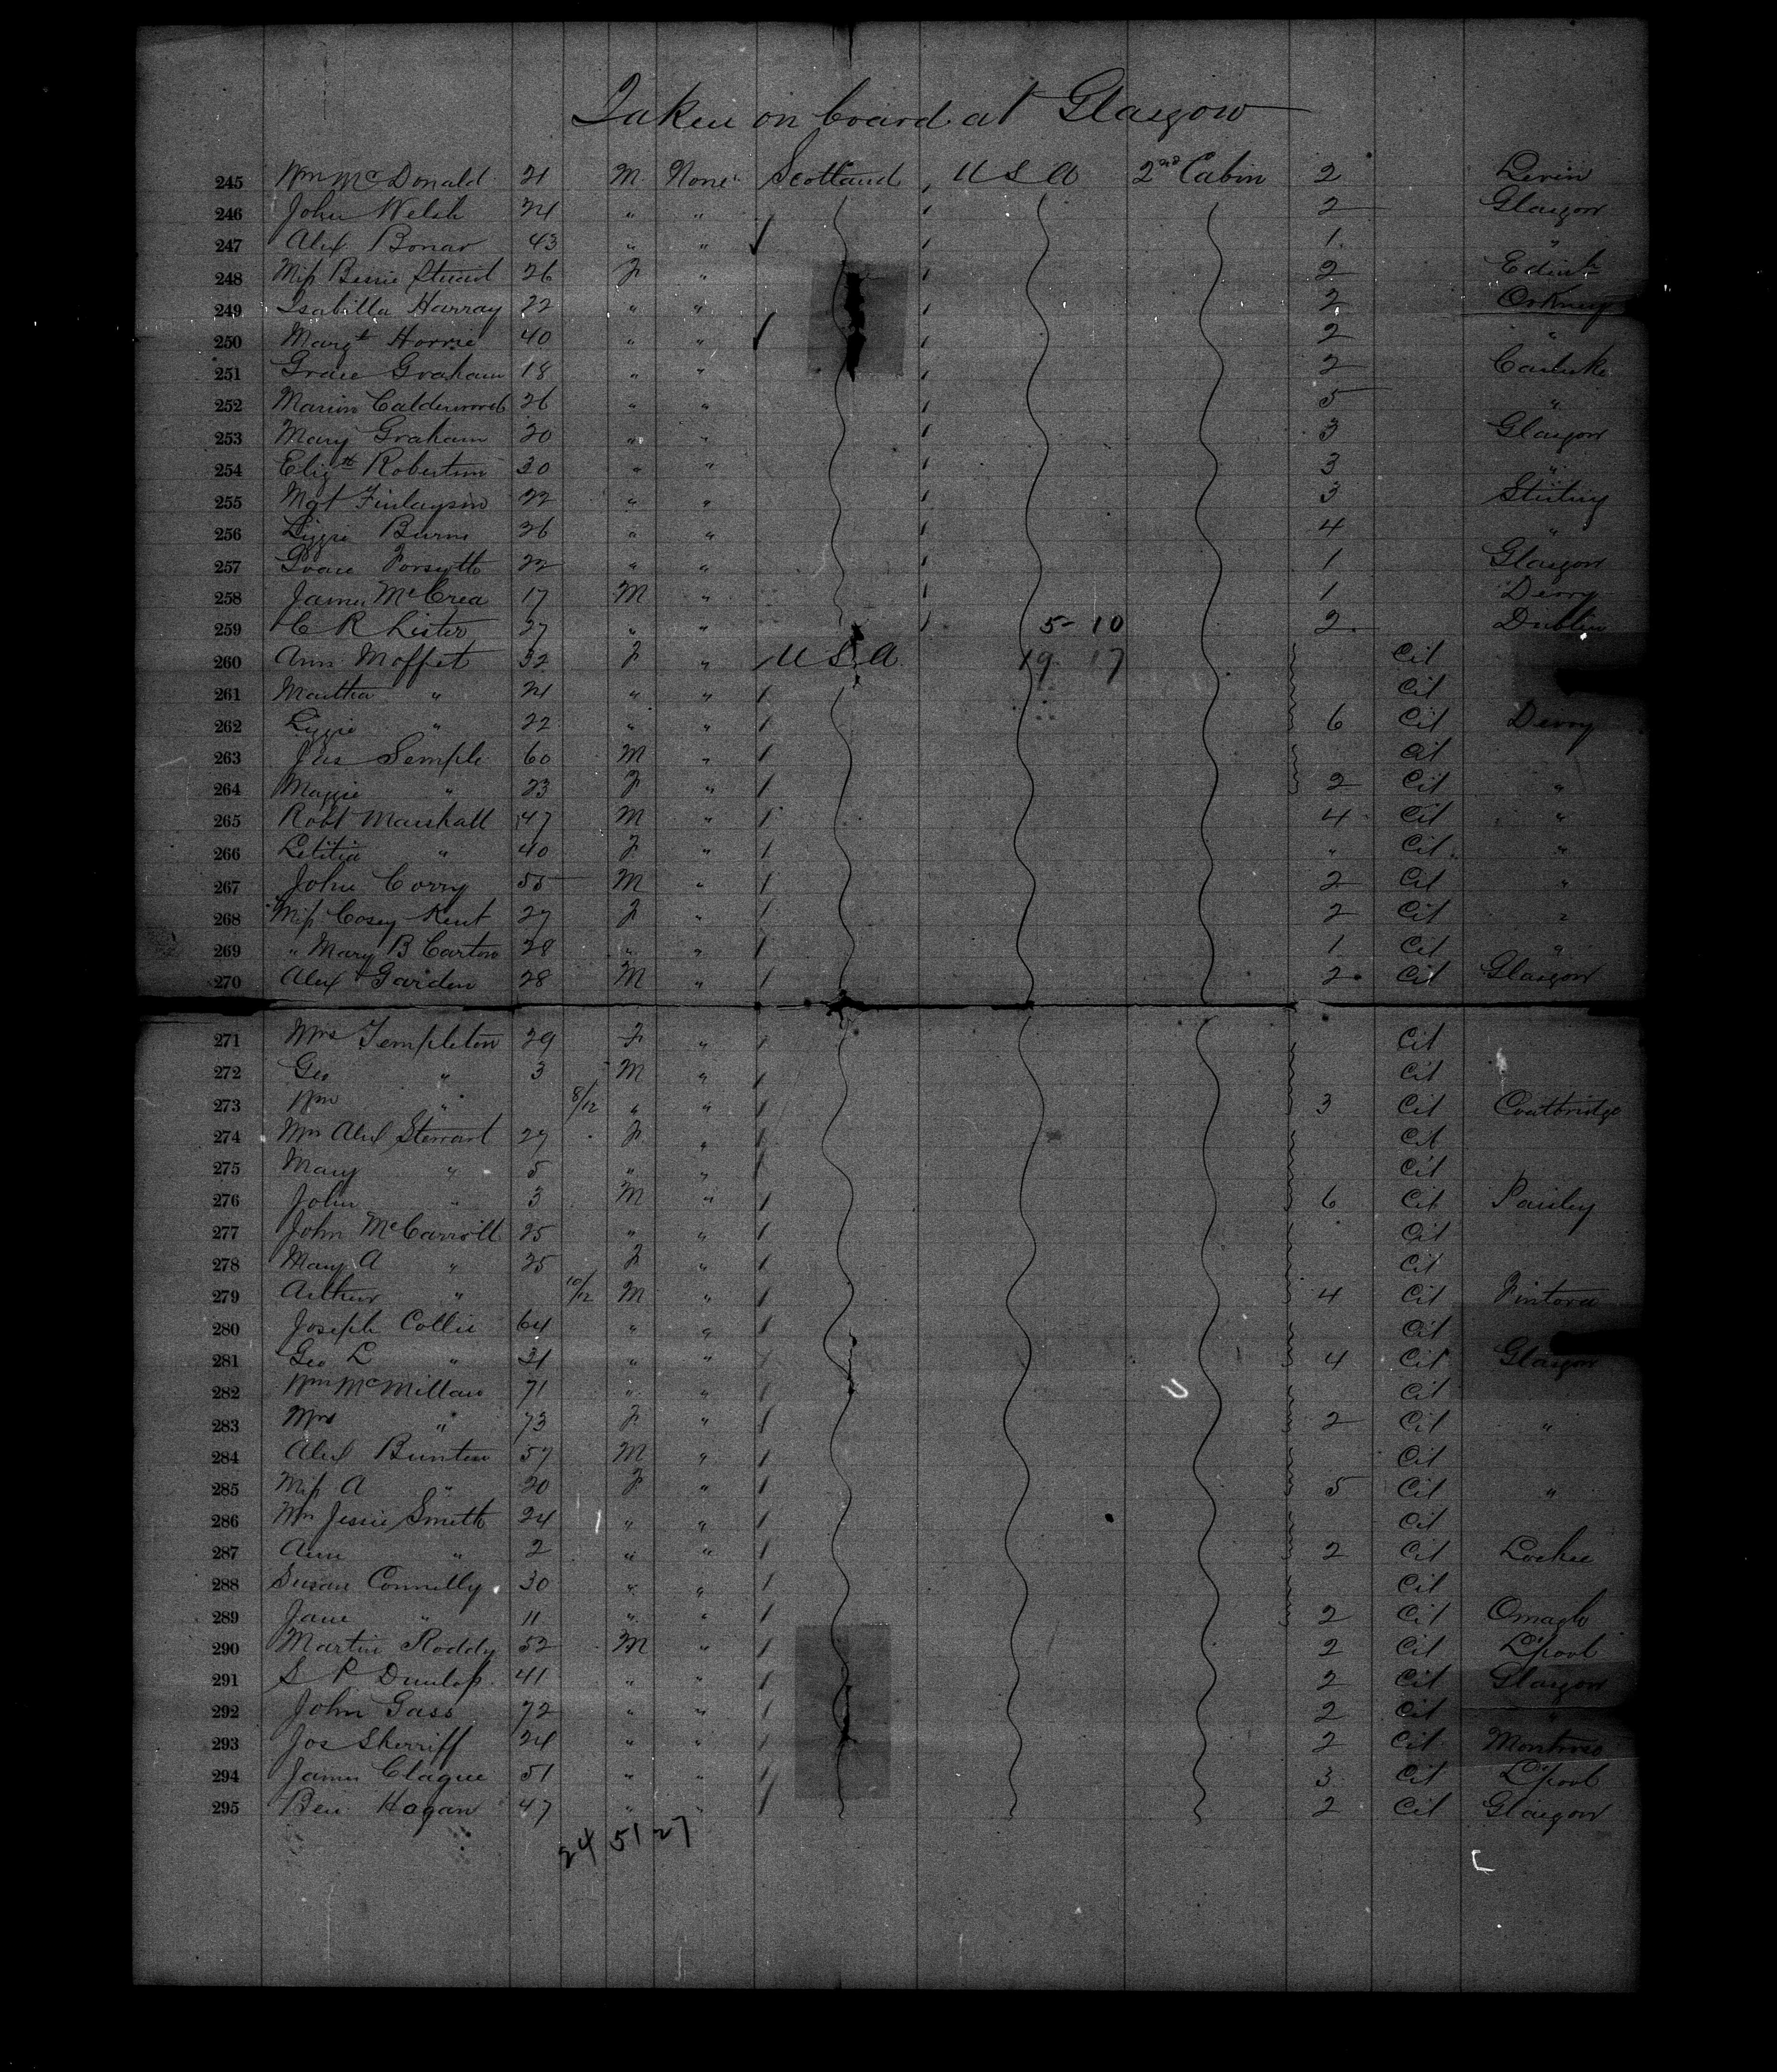 Taken on board at Glasgow
245 Wm McDonald 21 M None Scotland U S A 2nd Cabin 2 Leven
246 John Welsh 24 " " 2 Glasgow
247 Alex Bonar 43 " " 1 "
248 Miss Bessie Stuart 26 F " 2 Edinh
249 Isabella Harray 22 " " 2 Orkney
250 Margt Horrie 40 " " 2 "
251 Grace Graham 18 " " 2 Carluke
252 Marion Calderwood 26 " " 5 "
253 Mary Graham 20 " " 3 Glasgow
254 Elizth Robertson 30 " " 3 "
255 Mgt Finlayson 22 " " 3 Stirling
256 Lizzie Burns 26 " " 4 "
257 Grace Forsyth 22 " " 1 Glasgow
258 James McCrea 17 M " 1 Derry
259 C R Lister 27 " " 5 - 10 2 Dublin
260 Ann Moffet 32 F " U S A 19 17 Cit
261 Martha " 21 " " Cit
262 Lizzie " 22 " " 6 Cit Derry
263 Jas Semple 60 M " Cit
264 Maggie " 23 F " 2 Cit "
265 Robt Marshall 47 M " 4 Cit "
266 Letitia " 40 F " " Cit "
267 John Corry 55 M " 2 Cit "
268 Miss Cosey Kent 27 F " 2 Cit "
269 " Mary B Carton 28 " " 1 Cit "
270 Alex Garden 28 M " 2 Cit Glasgow
271 Mrs Templeton 29 F " Cit
272 Geo " 3 M " Cit
273 Wm " 8/12 " " 3 Cit Coatbridge
274 Mrs Alex Stewart 27 F " Cit
275 Mary " 5 " " Cit
276 John " 3 M " 6 Cit Paisley
277 John McCarroll 25 " " Cit
278 Mary A " 25 F " Cit
279 Arthur " 10/12 M " 4 Cit Fintona
280 Joseph Collie 64 " " Cit
281 Geo L " 31 " " 4 Cit Glasgow
282 Wm McMillan 71 " " Cit
283 Mrs " 73 F " 2 Cit "
284 Alex Bunten 57 M " Cit
285 Miss A " 20 F " 5 Cit "
286 Mrs Jessie Smith 24 " " Cit
287 Ann " 2 " " 2 Cit Lochee
288 Susan Connelly 30 " " Cit
289 Jane " 11 " " 2 Cit Omagh
290 Martin Roddy 52 M " 2 Cit L'pool
291 S P Dunlop 41 " " 2 Cit Glasgow
292 John Gass 72 " " 2 Cit "
293 Jos Sherriff 24 " " 2 Cit Montrose
294 James Clague 51 " " 3 Cit L'pool
295 Ben Hagan 47 " " 2 Cit Glasgow
24 51 27